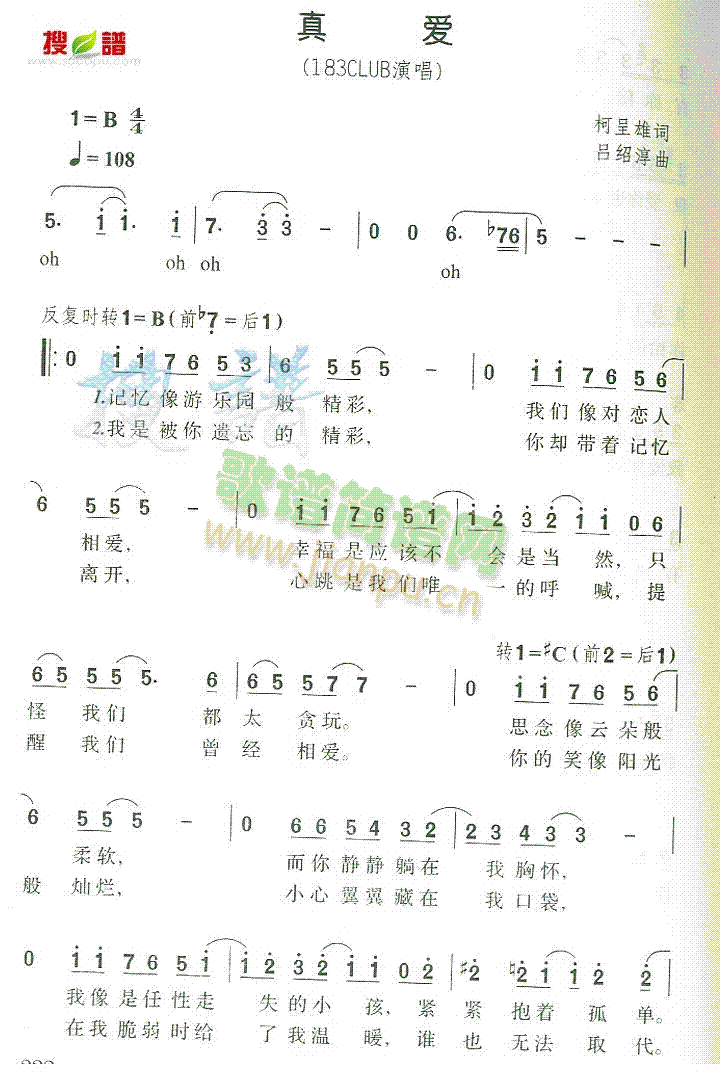 真 爱
搜 谱
www.sooopu.com
(183CLUB演唱)
1=B 4/4
♩=108
柯呈雄词
吕绍淳曲
5· i i· i | 7· 3 3 - | 0 0 6· ♭76 | 5 - - - |
oh oh oh oh
反复时转1=B(前♭7=后1)
0 i i 7 6 5 3 | 6 5 5 5 - | 0 i i 7 6 5 6
1.记忆 像游 乐园 般 精彩, 我们 像对 恋人
2.我是 被你 遗忘 的 精彩, 你却 带着 记忆
搜 谱
6 5 5 5 - | 0 i i 7 6 5 i | i 2 3 2 i i 0 6
相爱, 幸福 是应 该不 会是当 然, 只
离开, 心跳 是我 们唯 一的呼 喊, 提
歌谱简谱网
www.jianpu.cn
转1=♯C(前2=后1)
6 5 5 5 5· 6 | 6 5 5 7 7 - | 0 i i 7 6 5 6
怪 我们 都 太 贪玩。 思念 像云 朵般
醒 我们 曾 经 相爱。 你的 笑像 阳光
6 5 5 5 - | 0 6 6 5 4 3 2 | 2 3 4 3 3 - |
柔软, 而你 静静 躺在 我 胸怀,
般 灿烂, 小心 翼翼 藏在 我 口袋,
0 i i 7 6 5 i | i 2 3 2 i i 0 2 | ♯2 ♮2 i i 2 2 |
我像 是任 性走 失的小 孩, 紧 紧 抱着 孤 单。
在我 脆弱 时给 了我温 暖, 谁 也 无法 取 代。